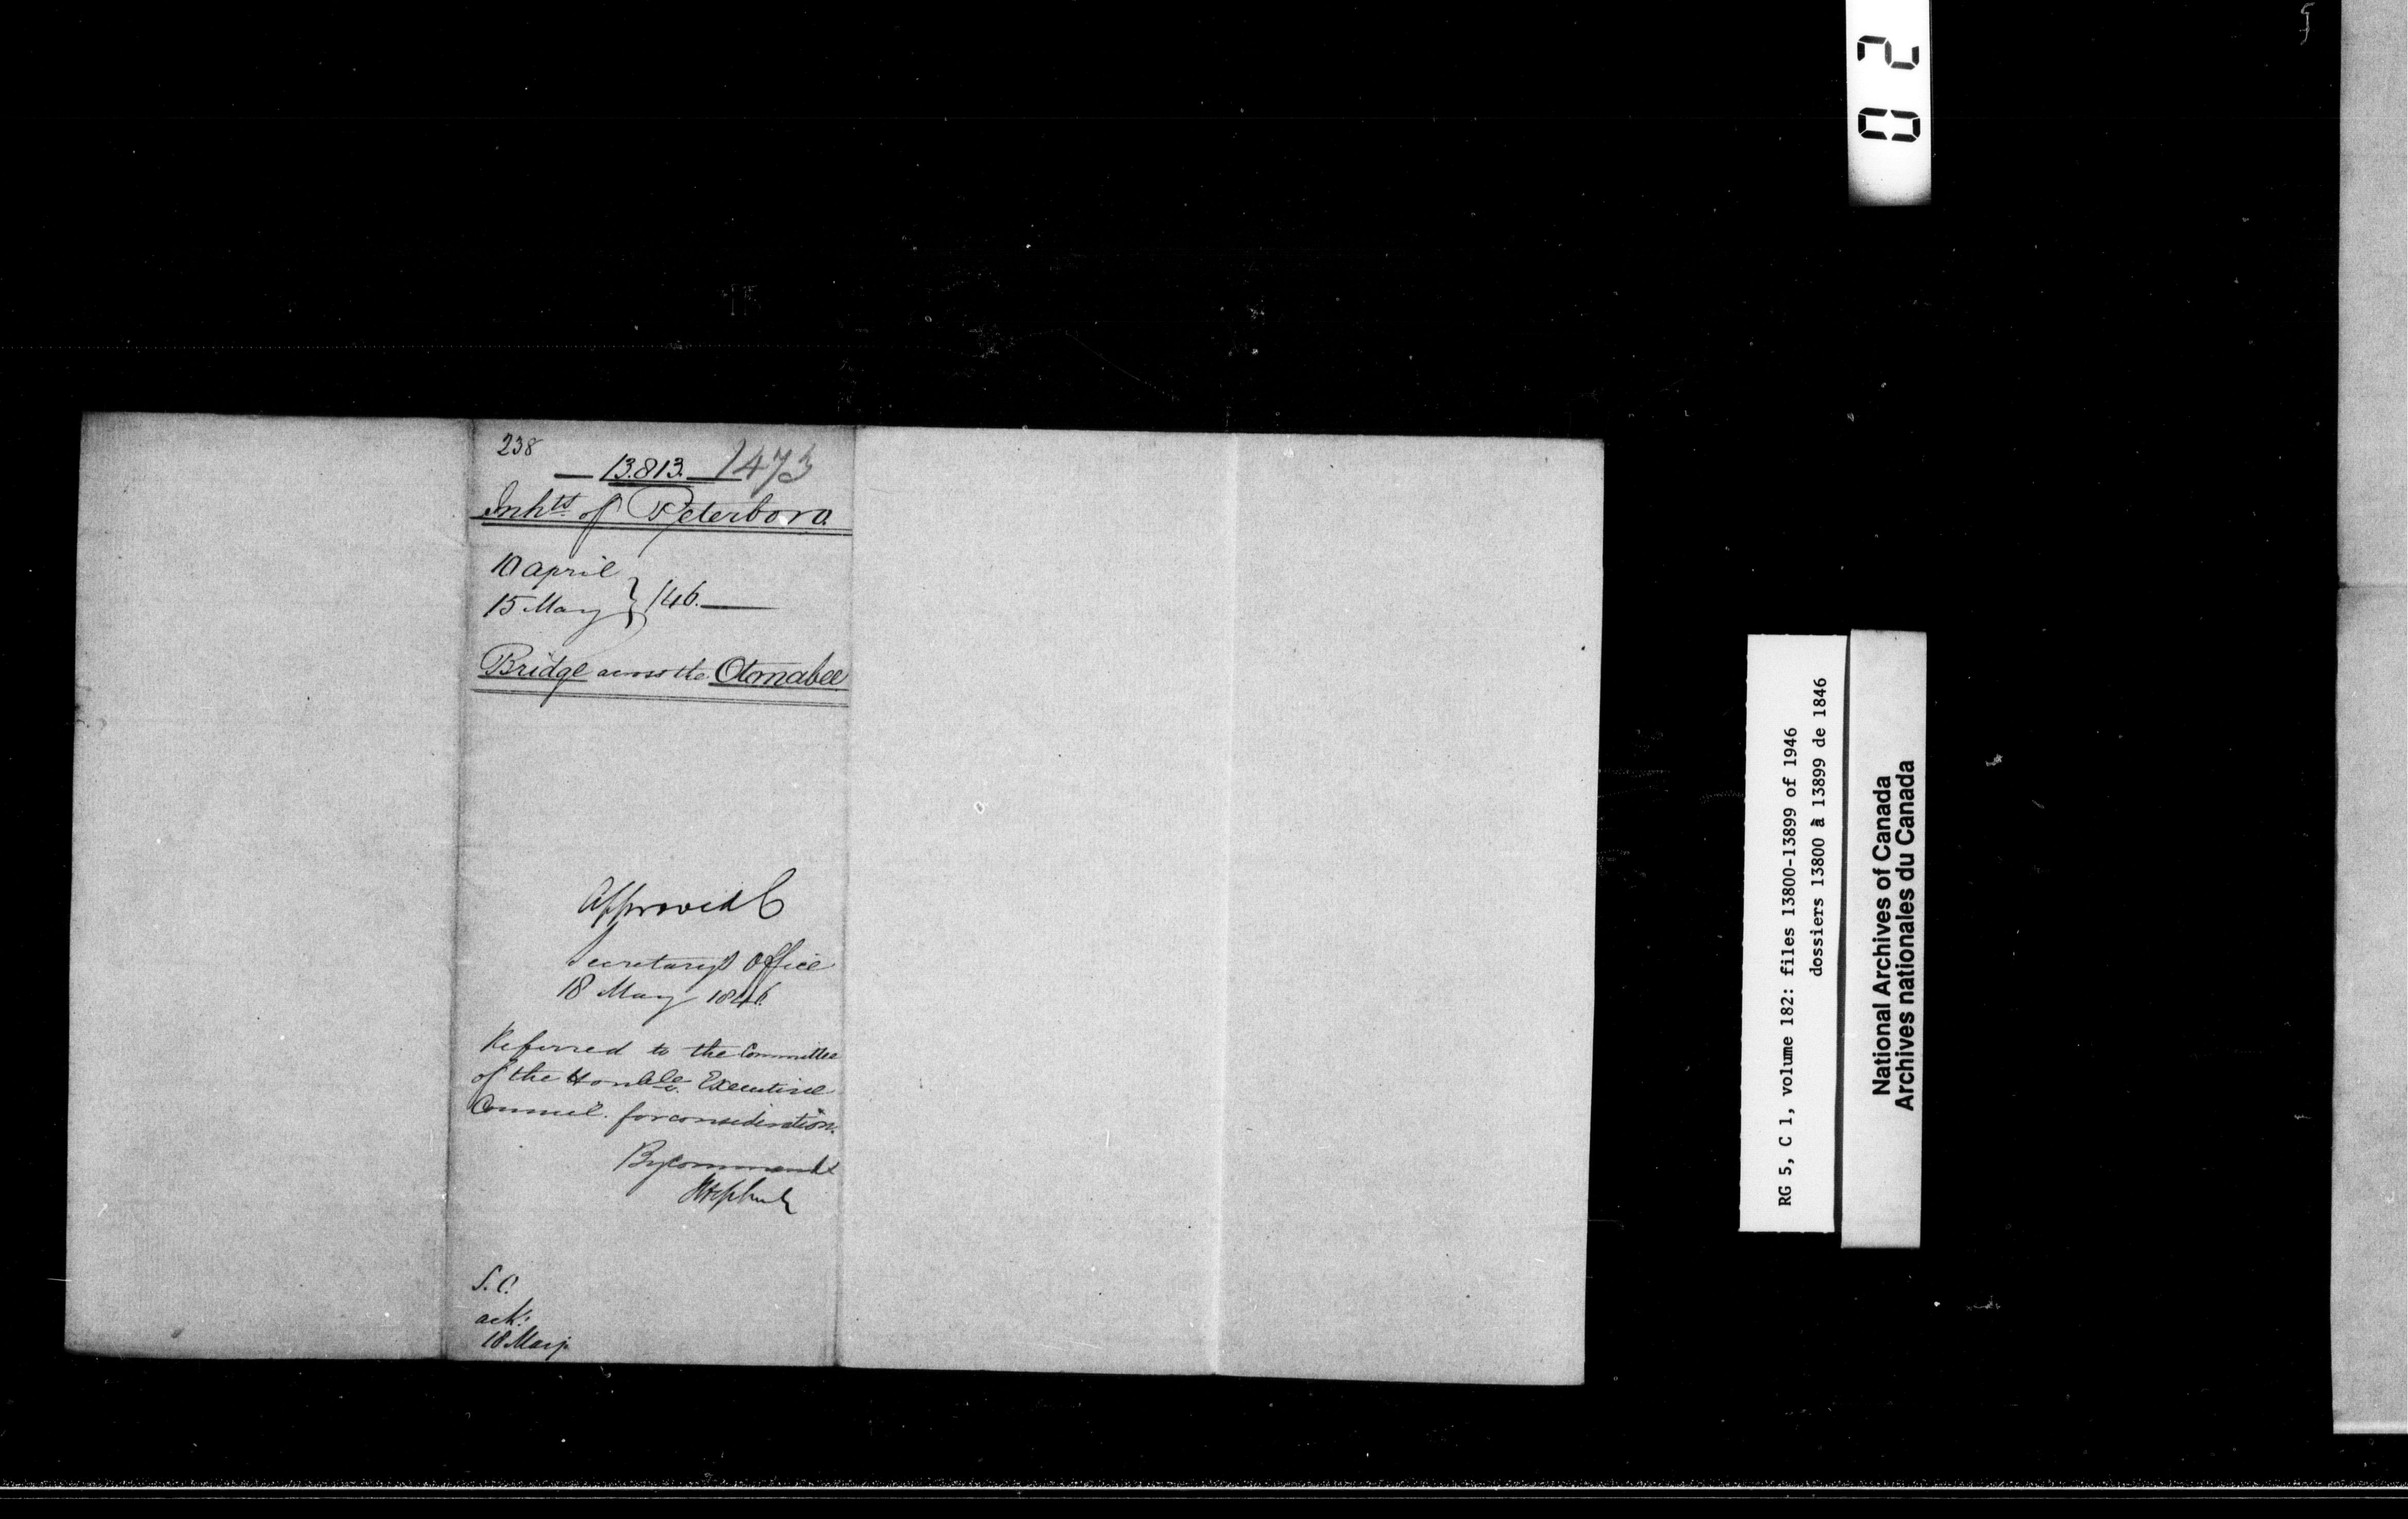 238
13.813. 1473
Inhts. of Peterboro.
10 April
15 May } /46.
Bridge across the Otonabee
Approved C
Secretary's Office
18 May 1846
Referred to the Committee
of the Honble. Executive
Council. for consideration.
By command
S. C.
ack:
18 May
02
RG 5, C 1, volume 182: files 13800-13899 of 1946
dossiers 13800 à 13899 de 1846
National Archives of Canada
Archives nationales du Canada